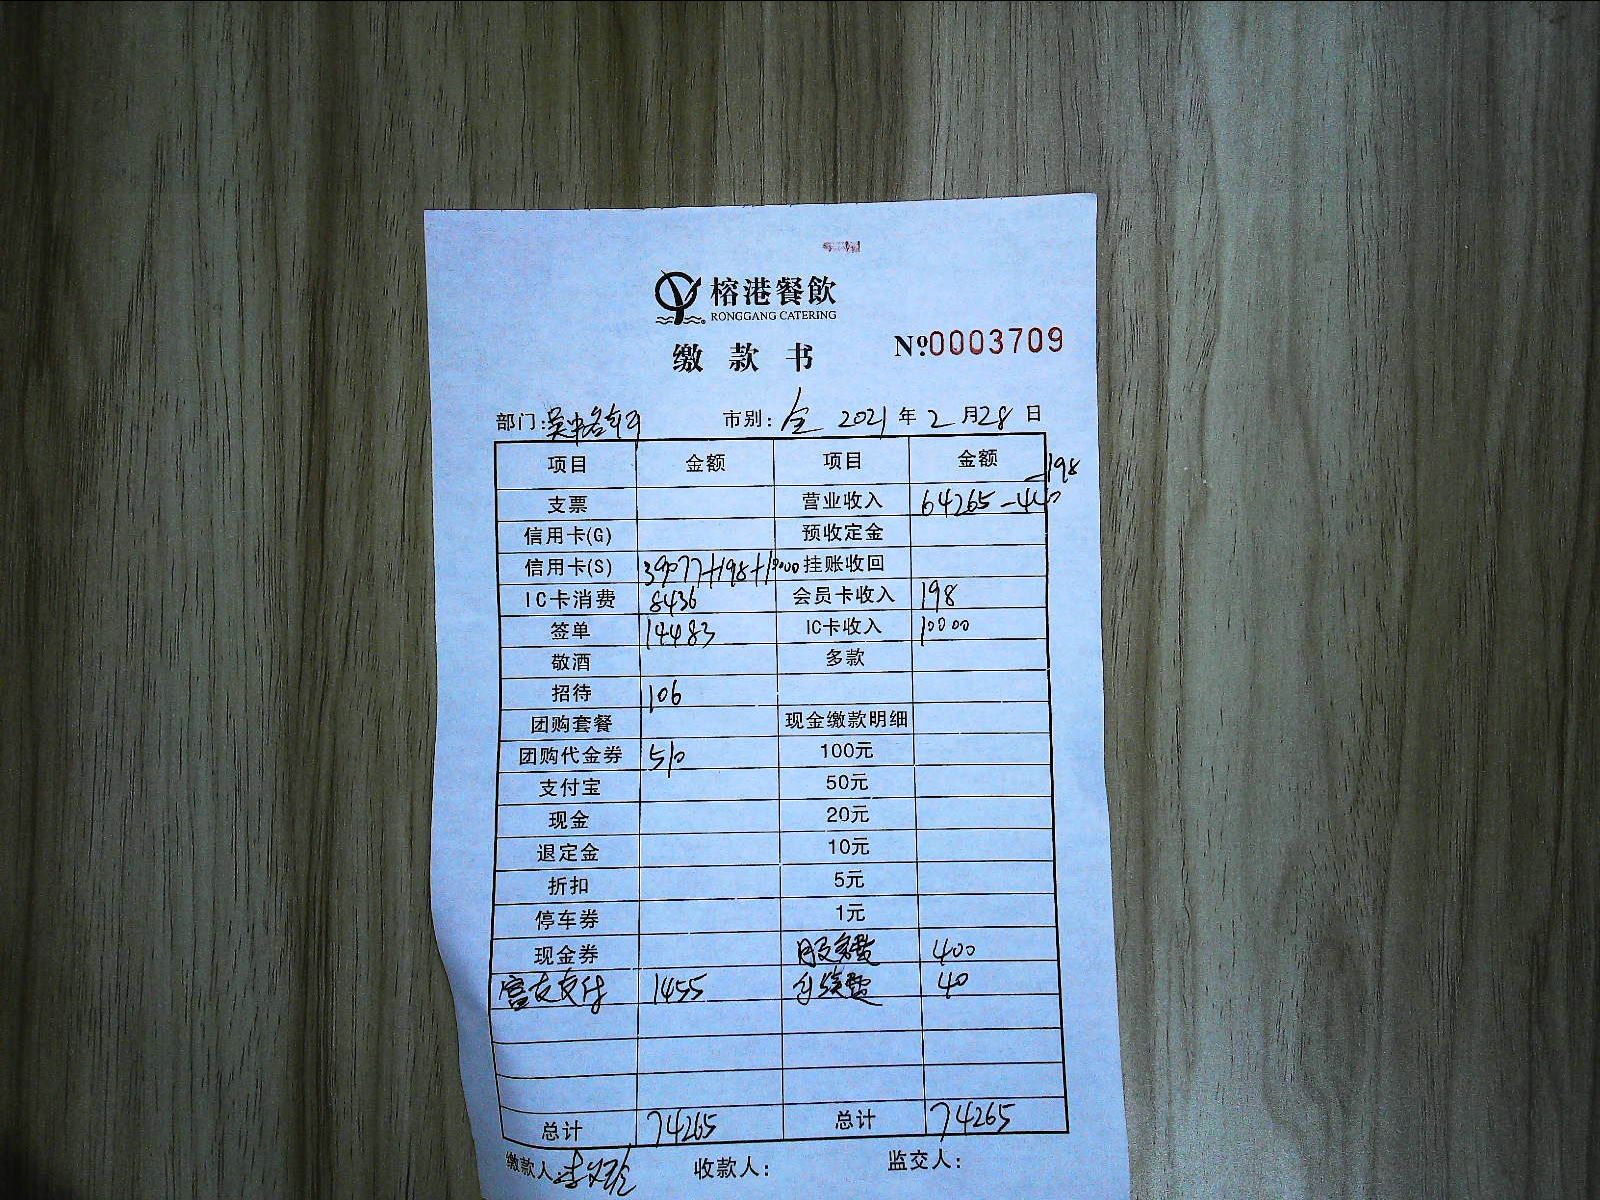 榕港餐飲
RONGGANG CATERING
缴款书 №0003709
部门: 吴中 市别: 全 2021年2月28日
项目 金额 项目 金额
支票 营业收入 64265-440-198
信用卡(G) 预收定金
信用卡(S) 39077+198+10000 挂账收回
IC卡消费 8436 会员卡收入 198
签单 14483 IC卡收入 10000
敬酒 多款
招待 106
团购套餐 现金缴款明细
团购代金券 510 100元
支付宝 50元
现金 20元
退定金 10元
折扣 5元
停车券 1元
现金券 服务费 400
富友支付 1455 手续费 40
总计 74265 总计 74265
缴款人: 收款人: 监交人: